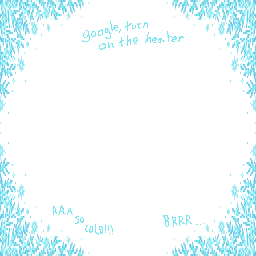 google, turn
on the heater
AAA
SO
COLD!!!
BRRR...